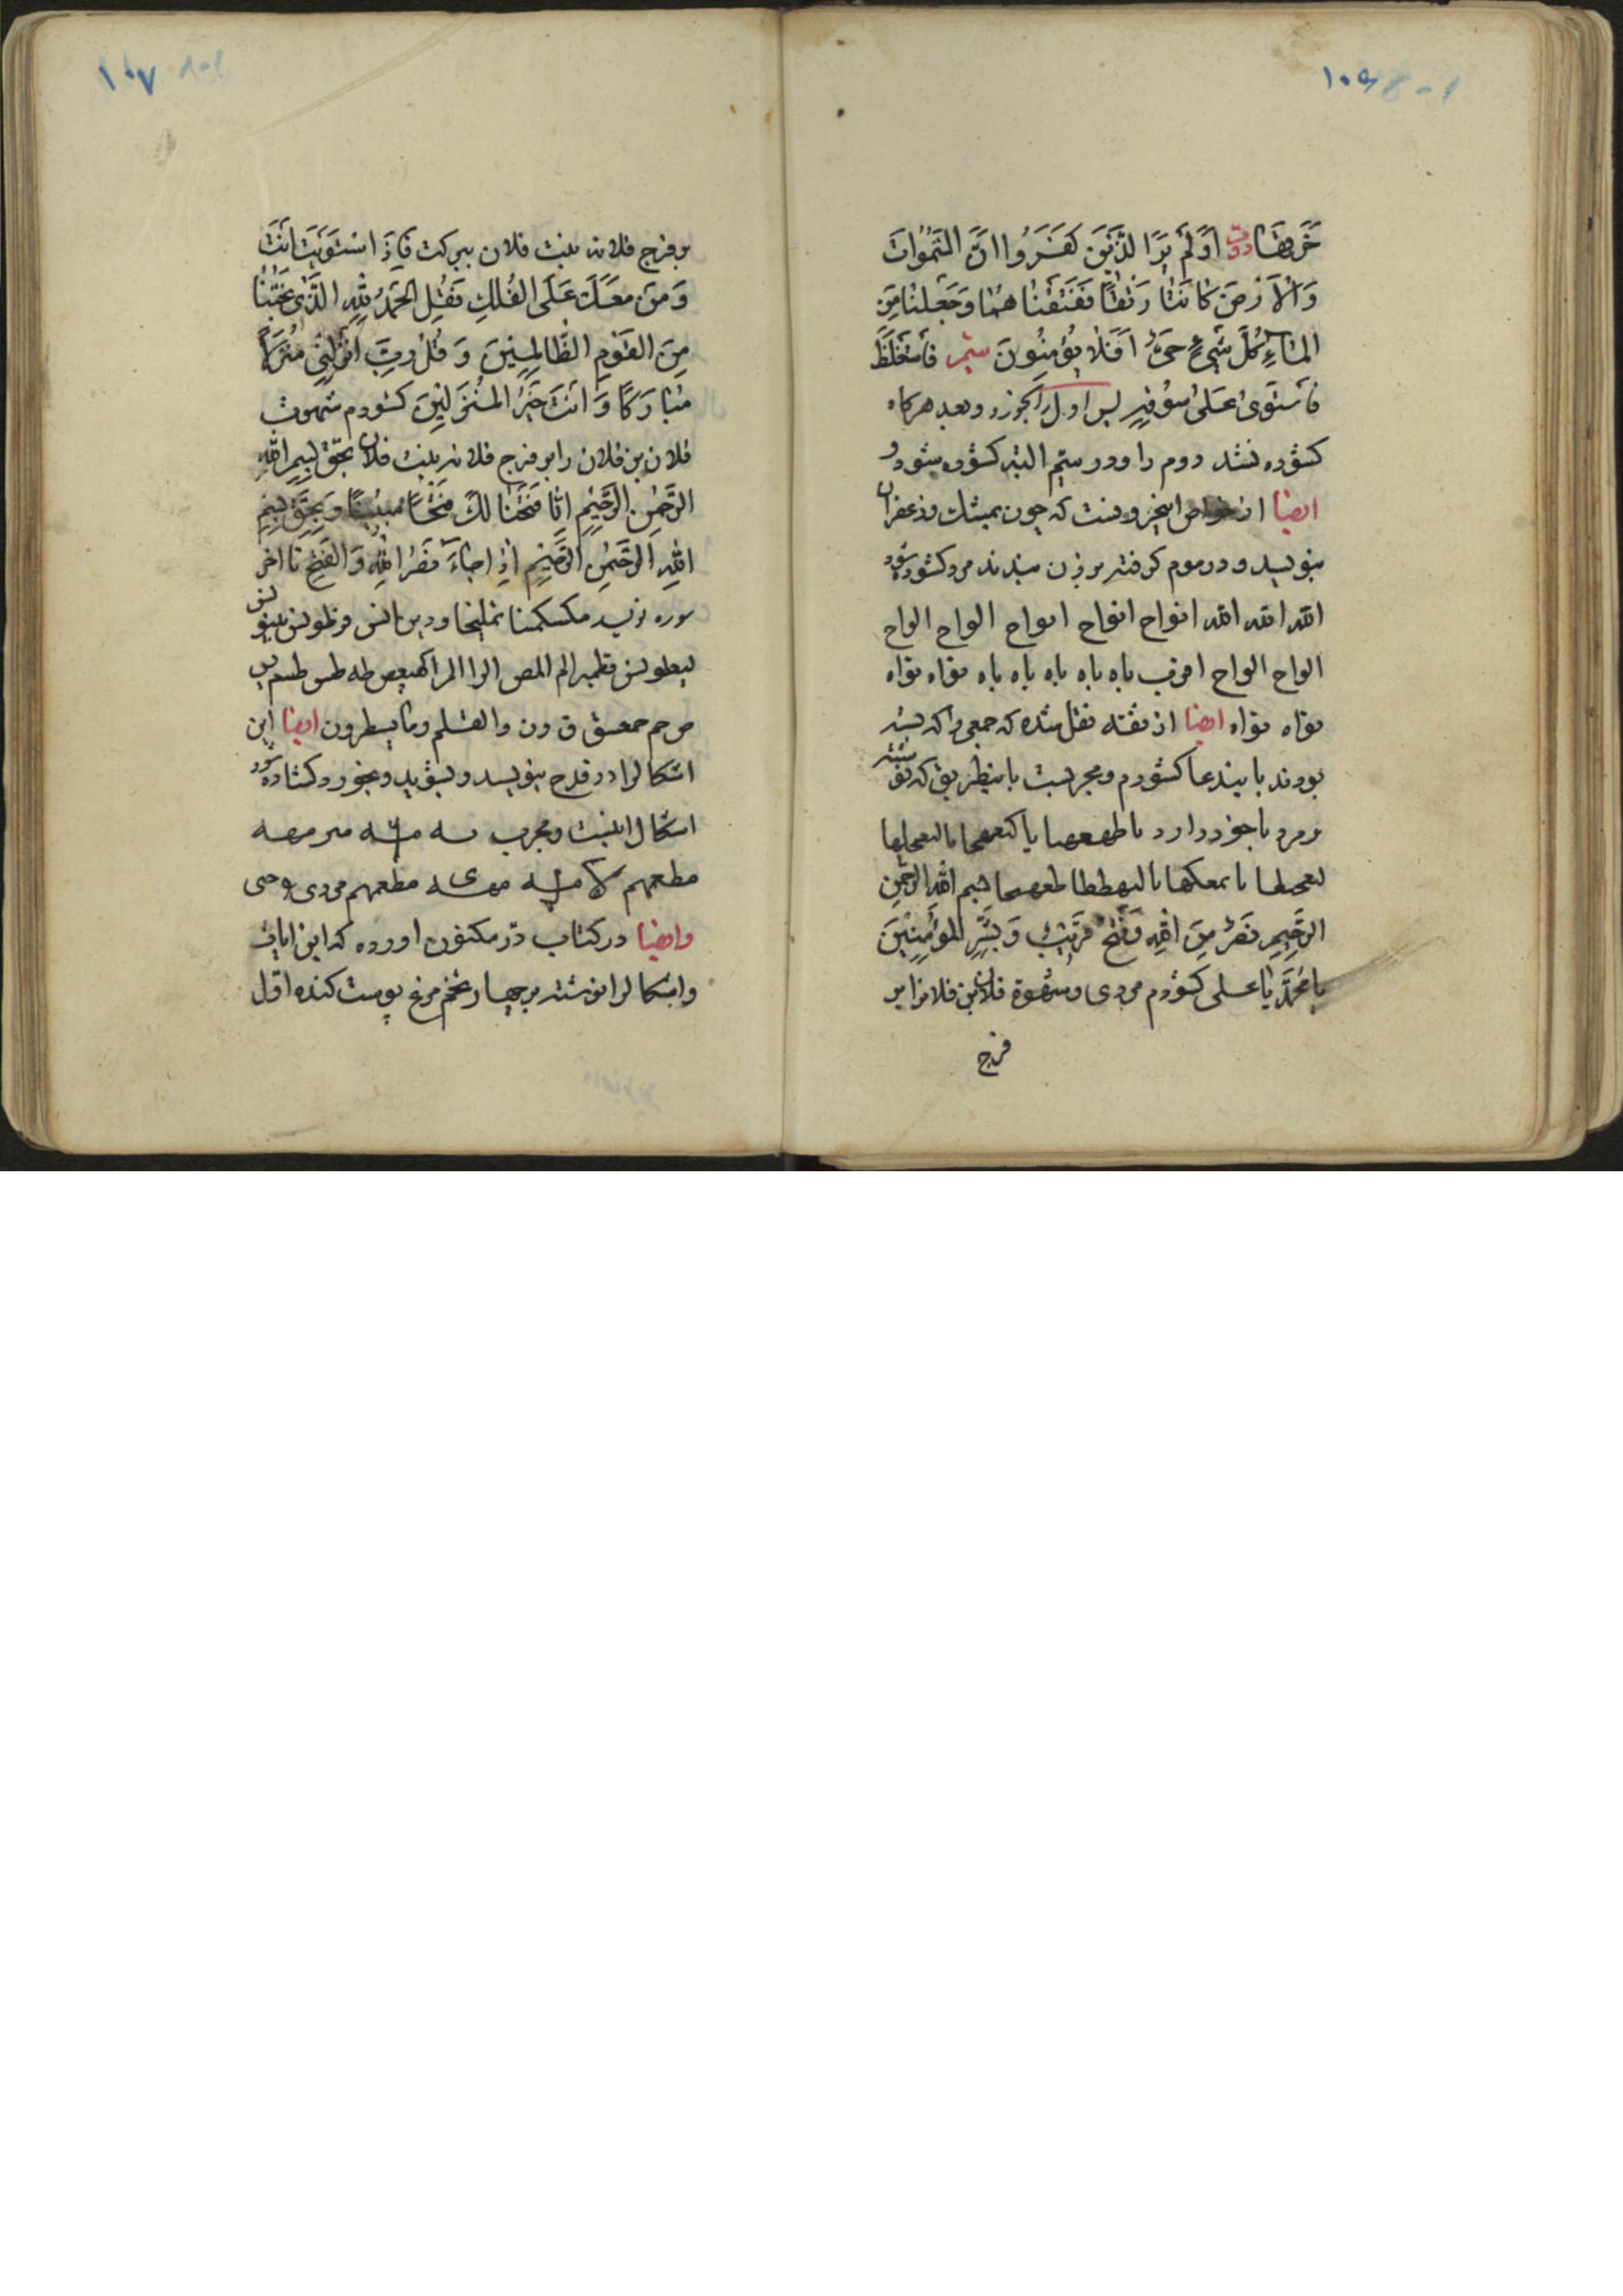 ۱۰۶
خَرَقَهَا دویّم اَوَلَمْ یَرَا لَّذِینَ کَفَرُوا اَنَّ السَّمٰوَاتِ
وَالْاَرْضَ کَانَتَا رَتْقًا فَفَتَقْنَاهُمَا وَجَعَلْنَا مِنَ
الْمَاءِ کُلَّ شَیْءٍ حَیٍّ اَفَلَا یُؤْمِنُونَ سیّم فَاسْتَغْلَظَ
فَاسْتَوٰی عَلٰی سُوقِهِ پس اول را بخورد و بعد هرکاه
کشوده نشد دوم را و در سیّم البته کشوده شود و
ایضا از خواص ابخر و فست که چون بمشک و زعفران
بنویسد و در موم کرفته بر زن بندند مرد کشوده شود
الله الله الله افواح افواح افواح الواح الواح
الواح الواح یاه یاه یاه یاه یاه یاه نواه نواه
نواه نواه ایضا از ثقته نقل شده که جمعی را که بسته
بودند باینه دعا کشودم و مجربست باینطریق که نوشته
مرد با خود دارد
بسم الله الرحمن
الرَّحِیمِ نَصْرٌ مِنَ اللهِ وَفَتْحٌ قَرِیبٌ وَبَشِّرِ الْمُؤْمِنِینَ
یا مُحَمَّدُ یا علی کشودم مردی و شهوة فلان بن فلانرا بر
فرج
۱۰۷
بر فرج فلانه بنت فلان ببرکت فَاِذَا اسْتَوَیْتَ اَنْتَ
وَمَنْ مَعَکَ عَلَی الْفُلْکِ فَقُلِ الْحَمْدُ لِلّٰهِ الَّذِی نَجّٰینَا
مِنَ الْقَوْمِ الظَّالِمِینَ وَقُلْ رَبِّ اَنْزِلْنِی مُنْزَلًا
مُبَارَکًا وَاَنْتَ خَیْرُ الْمُنْزِلِینَ کشودم شهوت
فلان بن فلان را بر فرج فلانه بنت فلان بحق بِسْمِ اللهِ
الرَّحْمٰنِ الرَّحِیمِ اِنَّا فَتَحْنَا لَکَ فَتْحًا مُبِینًا وَبِحَقِّ بِسْمِ
اللهِ الرَّحْمٰنِ الرَّحِیمِ اِذَا جَاءَ نَصْرُ اللهِ وَالْفَتْحُ تا آخر
سوره نویسد مکسلمینا تملیخا
قطمیر الم المص الرا المرا کهیعص طه طس طسم یس
ص حم حمعسق ق ون والقلم وما یسطرون ایضا این
اشکالرا در قدح بنویسد و بشوید و بخورد کشاده شود
اشکال اینست و مجرب
وایضا در کتاب درّ مکنون اورده که این ایات
واشکالرا نوشته بر چهار تخم مرغ پوست کنده اوّل